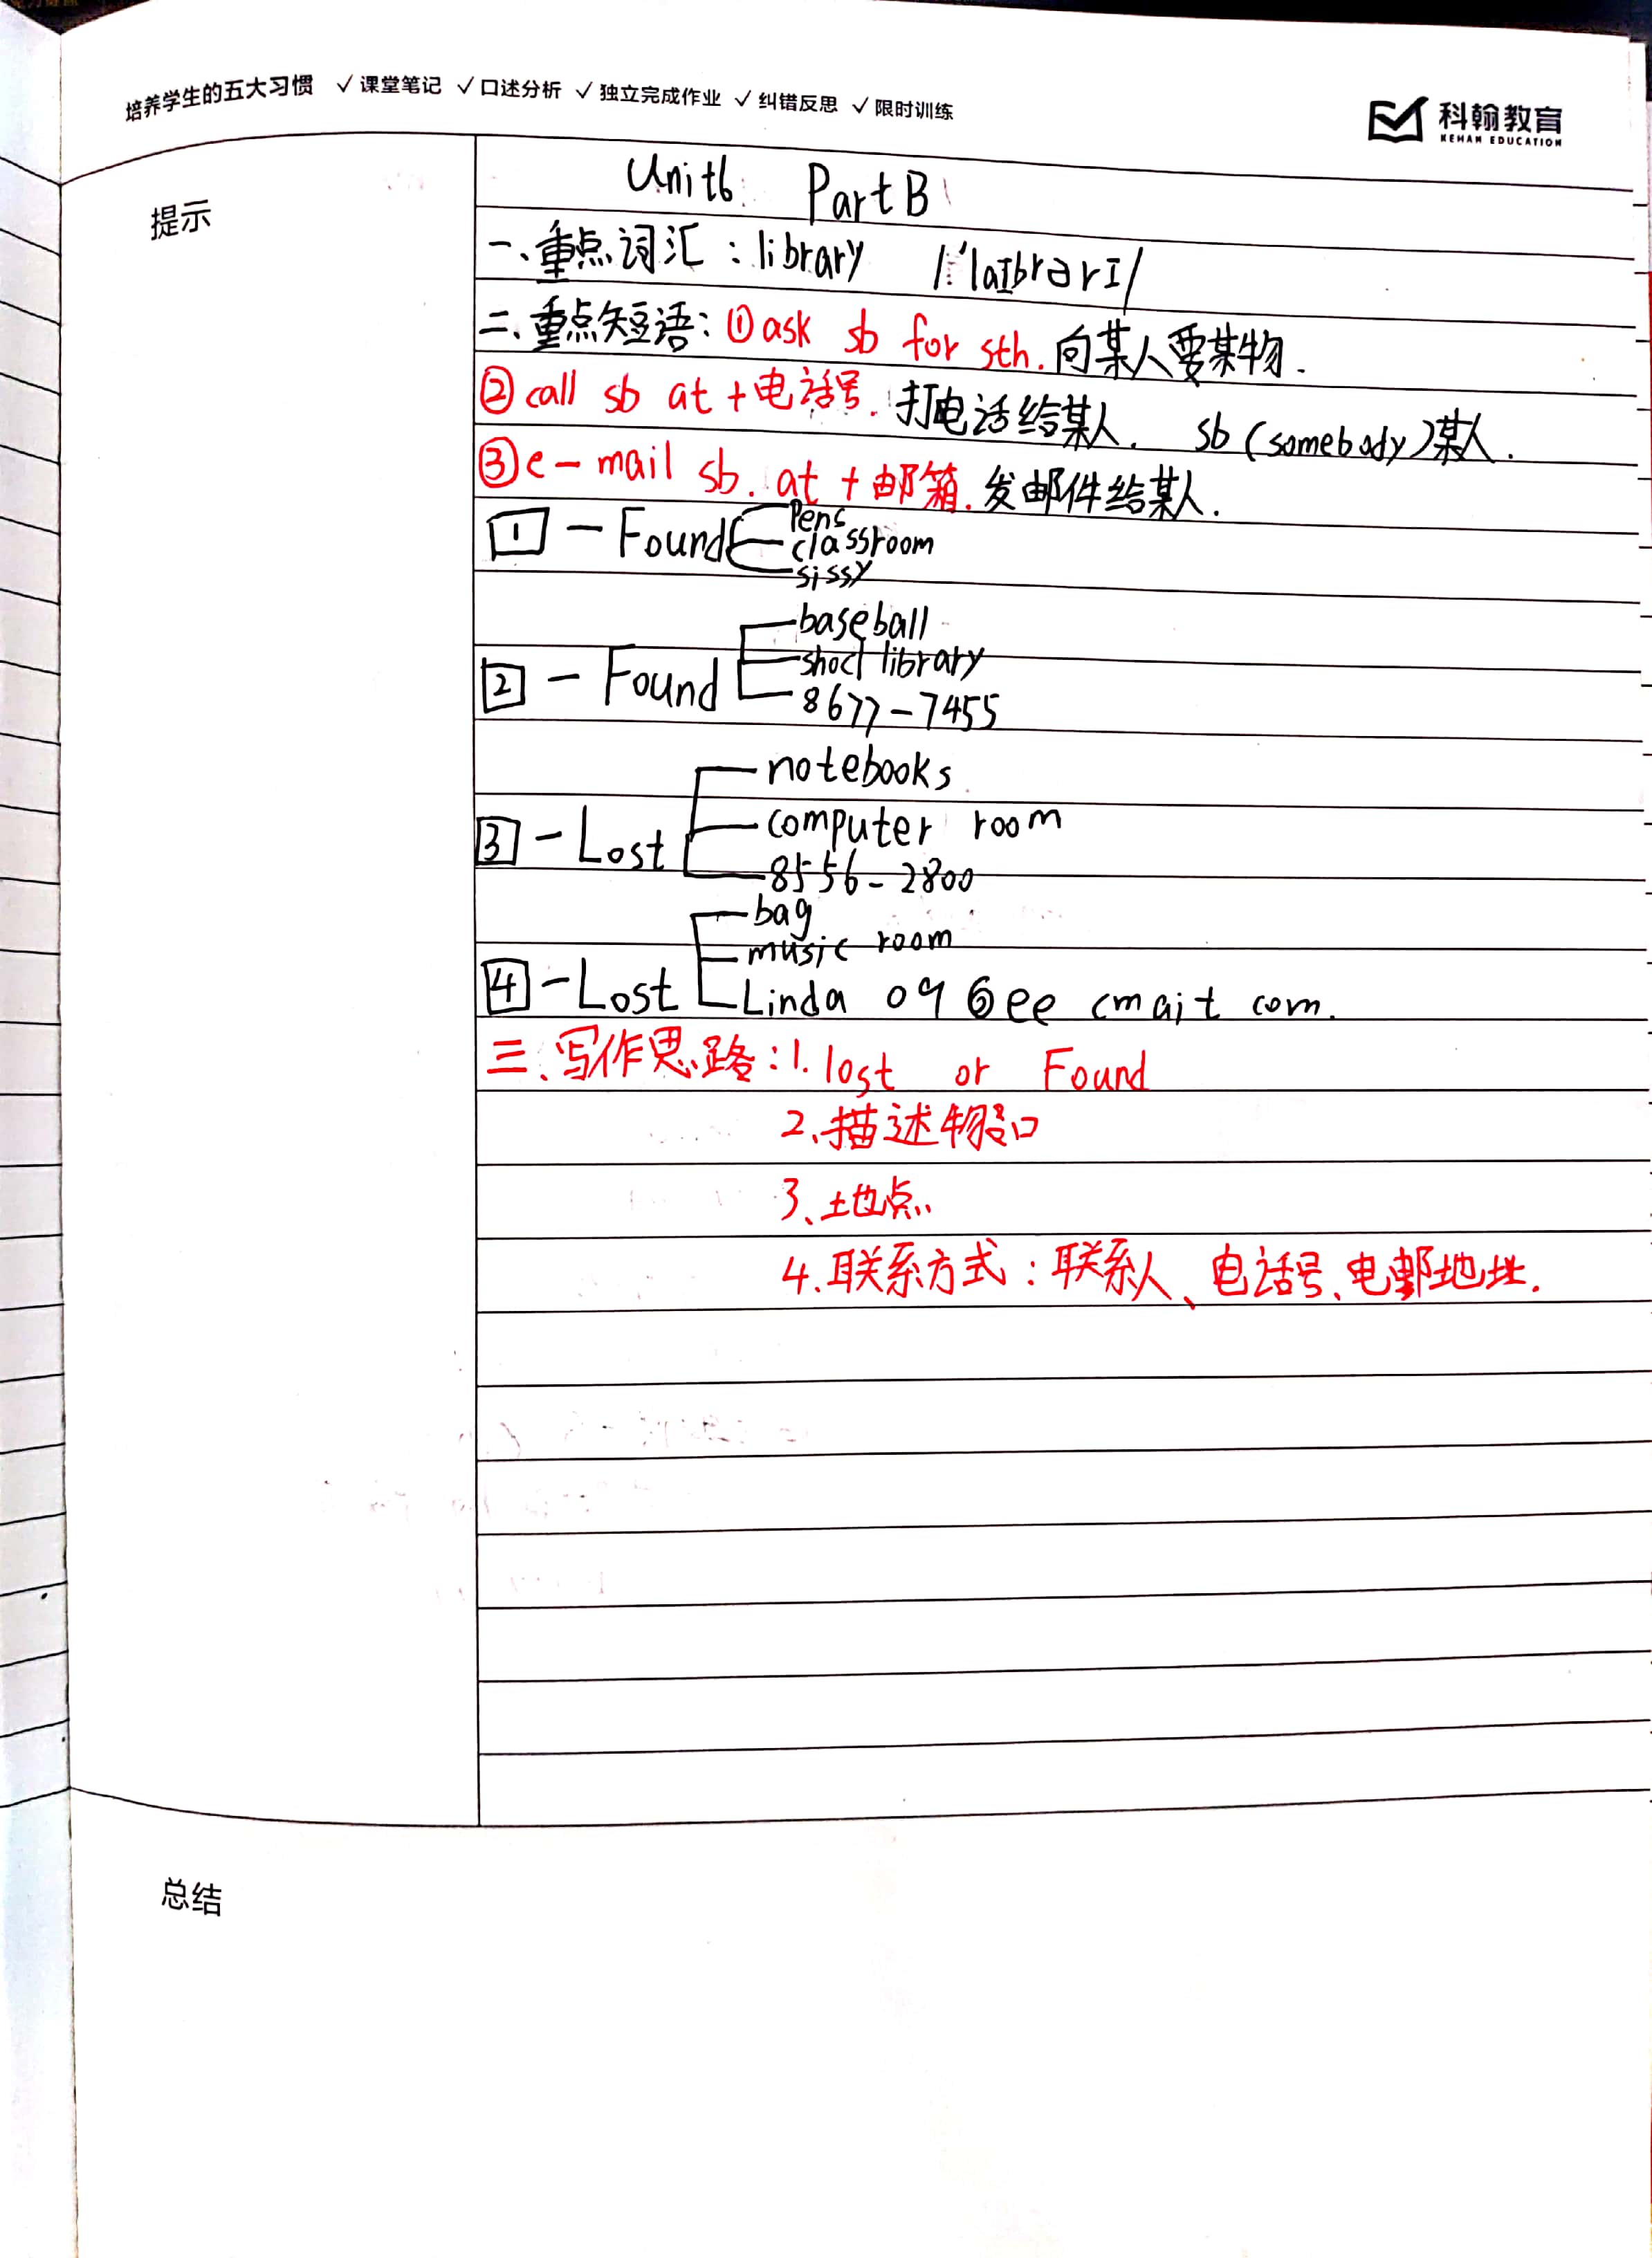 培养学生的五大习惯 ✓课堂笔记 ✓口述分析 ✓独立完成作业 ✓纠错反思 ✓限时训练
科翰教育
KEHAN EDUCATION
提示
Unit6 Part B
一、重点词汇：library /'laɪbrərɪ/
二、重点短语：①ask sb for sth. 向某人要某物.
②call sb at + 电话号. 打电话给某人. sb (somebody) 某人.
③e-mail sb. at + 邮箱. 发邮件给某人.
1 — Found
pens
classroom
sissy
2 — Found
baseball
shocl library
8677-7455
3 — Lost
notebooks
computer room
8556-2800
4 — Lost
bag
music room
Linda 09 6ee cmait com.
三、写作思路：1. lost or Found
2、描述物品
3、地点
4、联系方式：联系人、电话号、电邮地址.
总结